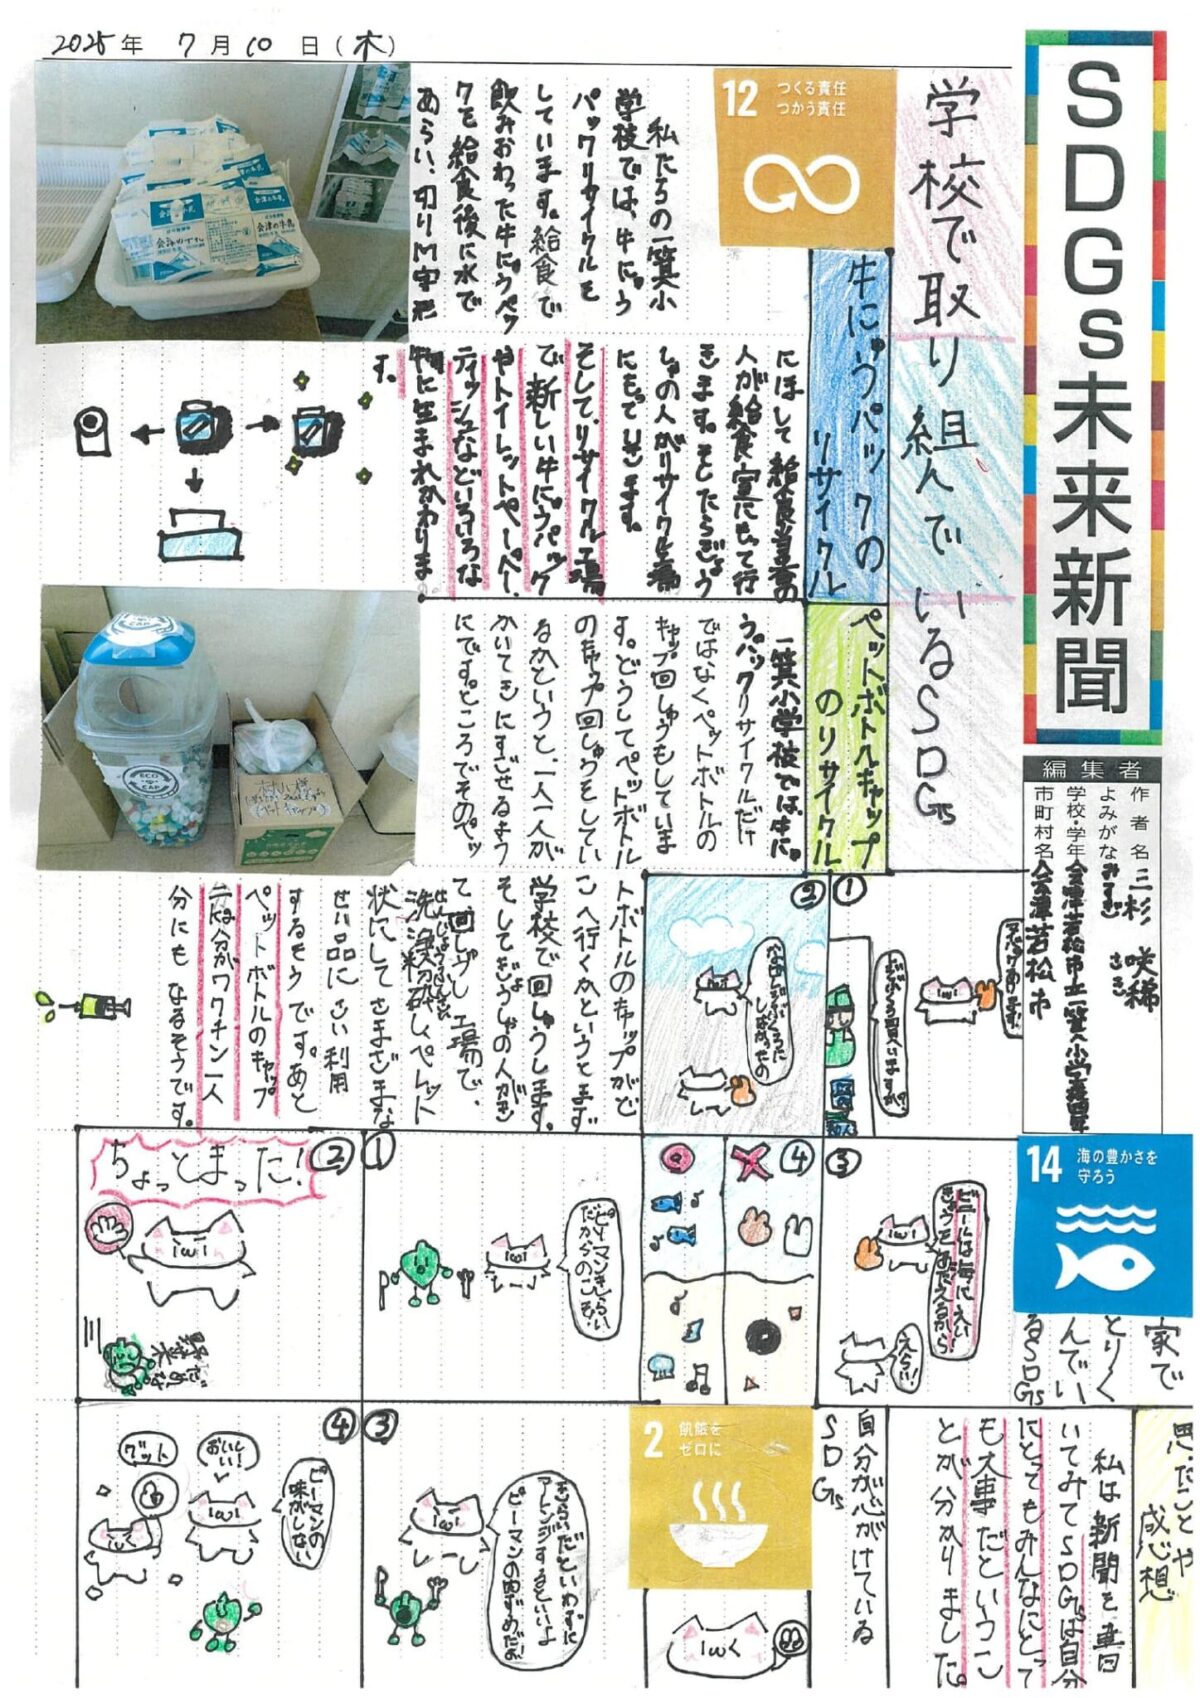 2025年 7月10日(木)
SDGs未来新聞
編集者
作者名 三杉 咲稀
よみがな みすぎ さき
学校・学年 会津若松市立一箕小学校四年
市町村名 会津若松市
学校で取り組んでいるSDGs
12 つくる責任
つかう責任
牛にゅうパックの
リサイクル
私たちの一箕小
学校では、牛にゅう
パックリサイクルを
しています。給食で
飲みおわった牛にゅうパッ
クを給食後に水で
あらい、切りM字形
にほして給食当番の
人が給食室にもって行
きます。そしたらぎょう
しゃの人がリサイクル工場
にもっていきます。
そして、リサイクル工場
で新しい牛にゅうパック
やトイレットペーパー、
ティッシュなどいろいろな
物に生まれかわりま
す。
ペットボトルキャップ
のリサイクル
一箕小学校では、牛にゅ
うパックリサイクルだけ
ではなくペットボトルの
キャップ回しゅうもしていま
す。どうしてペットボトル
のキャップ回しゅうをしてい
るかというと、一人一人が
かいてきにすごせるよう
にです。ところでそのペッ
トボトルのキャップがど
こへ行くかというとまず
学校で回しゅうします。
そしてぎょうしゃの人がき
て、回しゅうし工場で、
洗浄粉砕しペレット
状にしてさまざまな
せい品にさい利用
するそうです。あと
ペットボトルのキャップ
二は分がワクチン一人
分にもなるそうです。
会津の牛乳
ECO
CAP
14 海の豊かさを
守ろう
家で
とりく
んでい
るSDGs
①
②
なぜ
③
ビニールは海にえい
きょうをあたえるから
えらい!
④
2 飢餓を
ゼロに
自分が心がけている
SDGs
①
ピーマンきらい
だからのこそう
②
ちょっとまった!
野菜
③
きらいだといわずに
アレンジするといいよ
ピーマンの肉づめだよ
④
ピーマンの
味がしない
おいしー
い!
グット
思ったことや
感想
私は新聞を書
いてみてSDGsは自分
にとってもみんなにとって
も大事だというこ
とが分かりました。